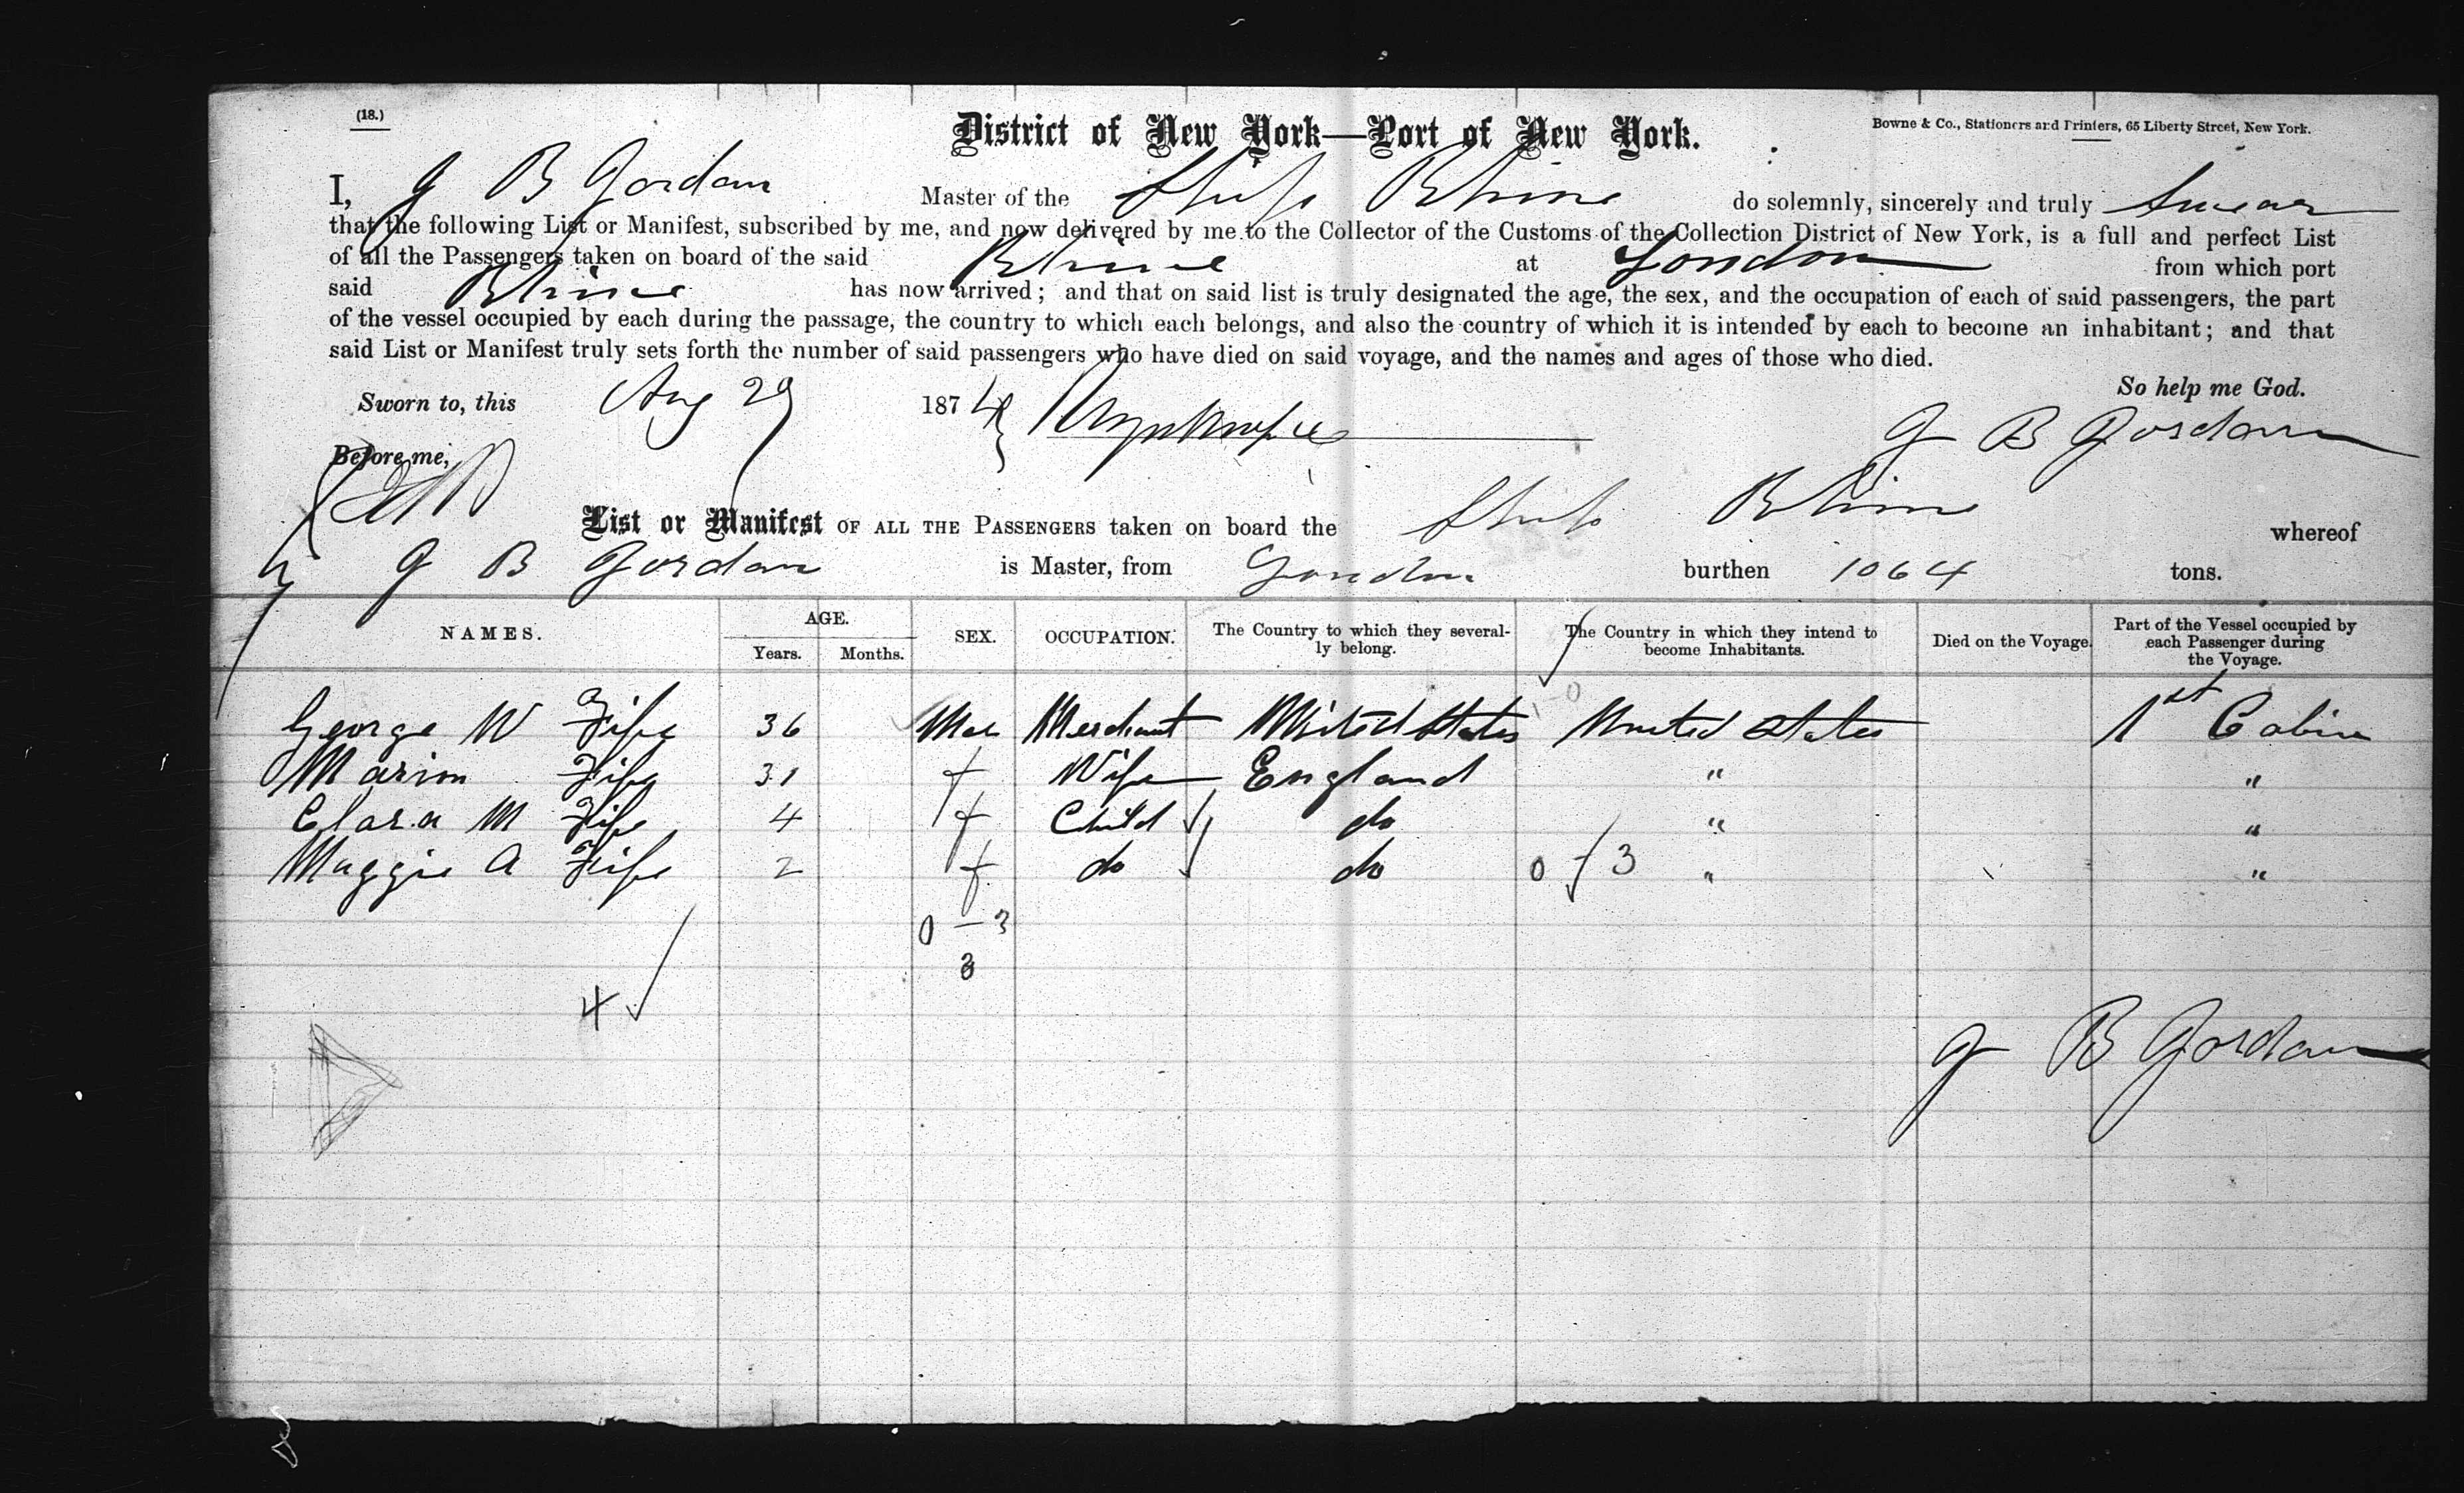 (18.)
District of New York—Port of New York.
Bowne & Co., Stationers and Printers, 65 Liberty Street, New York.
I, J B Gordon Master of the Ship Rhine do solemnly, sincerely and truly Swear
that the following List or Manifest, subscribed by me, and now delivered by me to the Collector of the Customs of the Collection District of New York, is a full and perfect List
of all the Passengers taken on board of the said Rhine at London from which port
said Rhine has now arrived; and that on said list is truly designated the age, the sex, and the occupation of each of said passengers, the part
of the vessel occupied by each during the passage, the country to which each belongs, and also the country of which it is intended by each to become an inhabitant; and that
said List or Manifest truly sets forth the number of said passengers who have died on said voyage, and the names and ages of those who died.
So help me God.
Sworn to, this Aug 29 1874
J B Gordon
Before me,
List or Manifest OF ALL THE PASSENGERS taken on board the Ship Rhine whereof
J B Gordon is Master, from London burthen 1064 tons.
NAMES. AGE. Years. Months. SEX. OCCUPATION. The Country to which they severally belong. The Country in which they intend to become Inhabitants. Died on the Voyage. Part of the Vessel occupied by each Passenger during the Voyage.
George W Fife 36 Mal Merchant United States United States 1st Cabin
Marion Fife 31 f Wife England " "
Clara M Fife 4 f Child do " "
Maggie A Fife 2 f do do 0 3 " "
0 - 3
3
4
J B Gordon